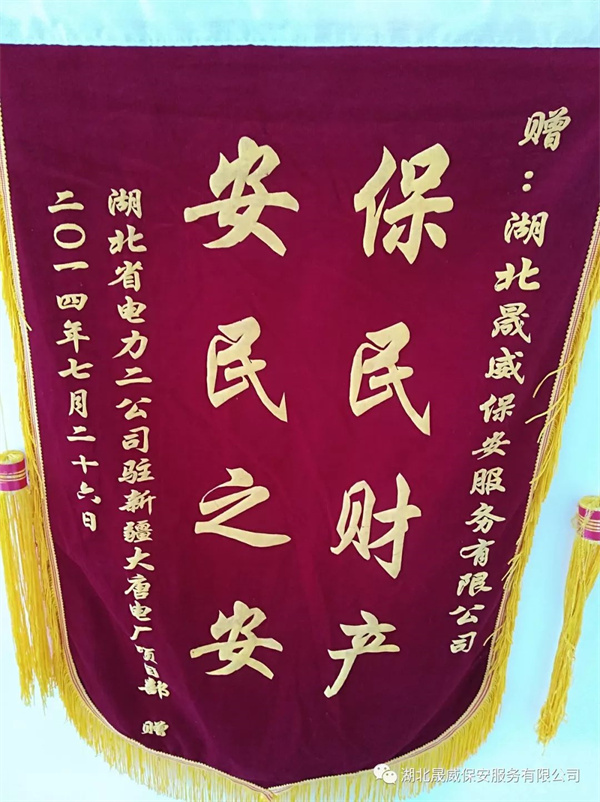 赠：湖北晟威保安服务有限公司
保民财产
安民之安
湖北省电力二公司驻新疆大唐电厂项目部 赠
二〇一四年七月二十六日
湖北晟威保安服务有限公司